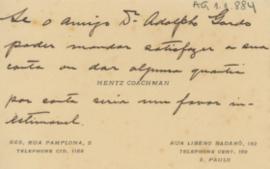 AG 1.1.884
Se o amigo Dr. Adolpho Gordo
poder mandar satisfazer a sua
conta ou dar alguma quantia
HENTZ COACHMAN
por conta seria um favor in-
estimavel.
RES. RUA PAMPLONA, 2
TELEPHONE CID. 1186
RUA LIBERO BADARÓ, 182
TELEPHONE CENT. 189
S. PAULO